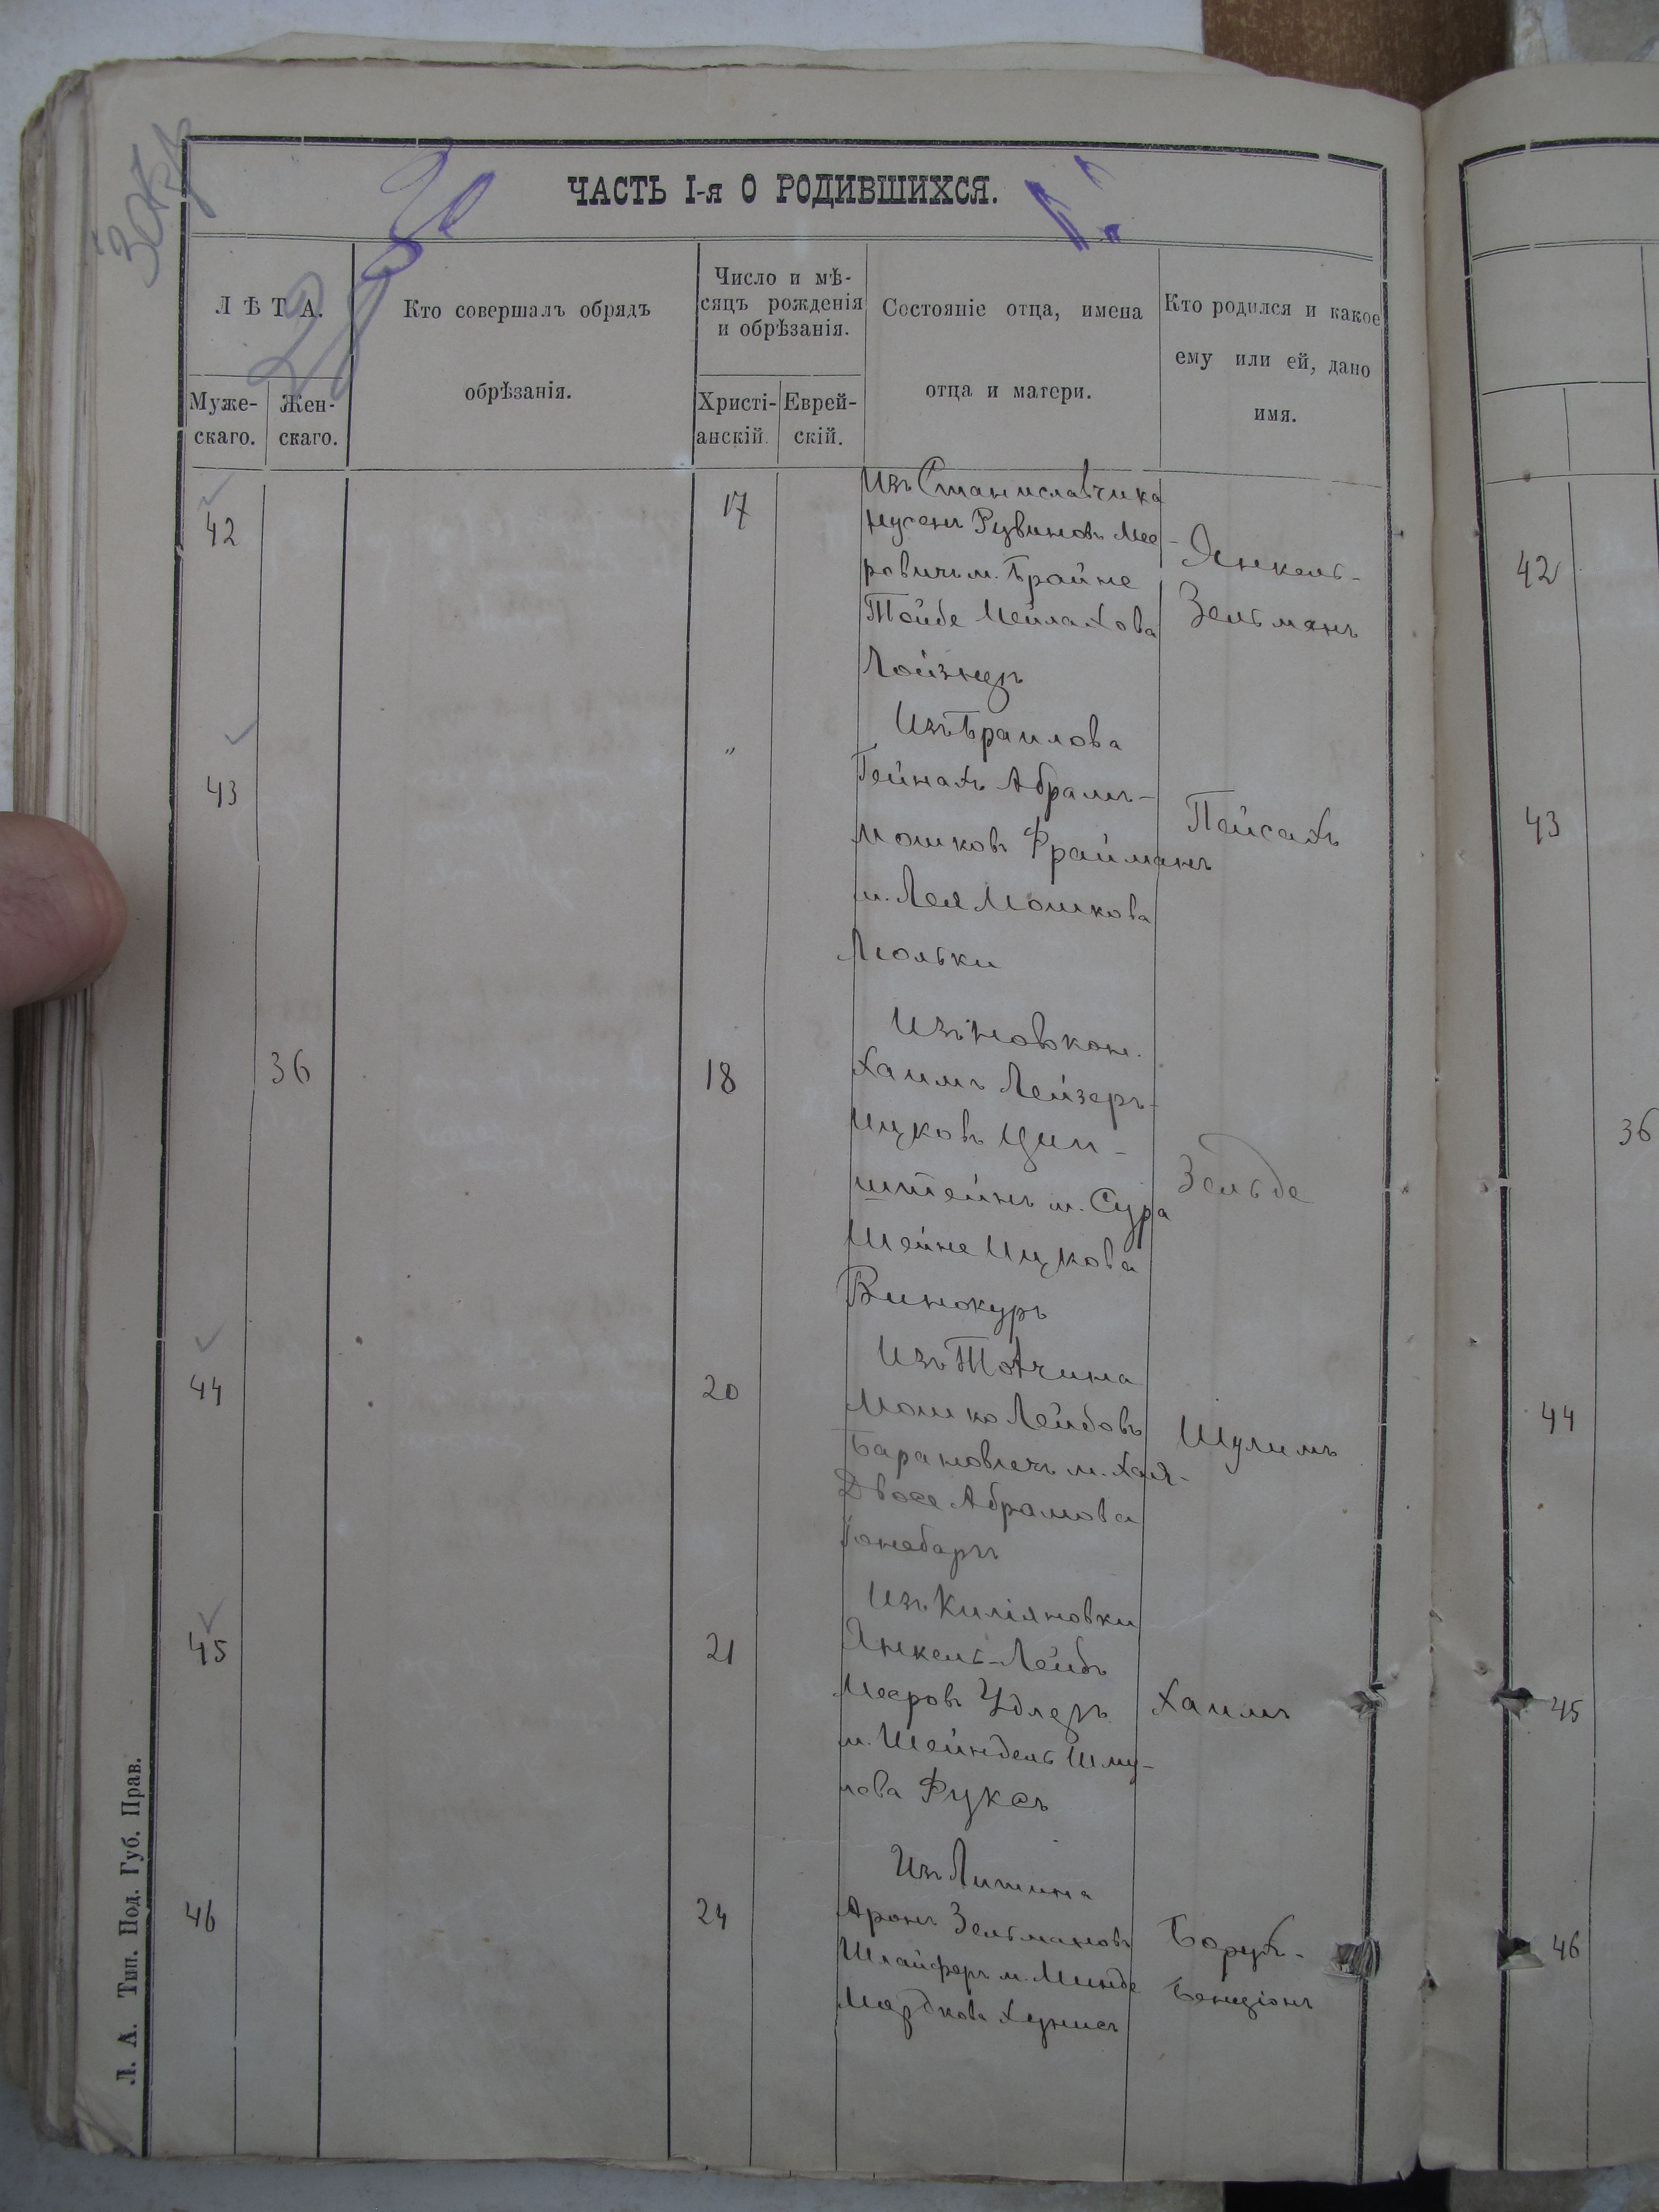 ЧАСТЬ I-я О РОДИВШИХСЯ.
ЛѢТА.
Муже-
скаго.
Жен-
скаго.
Кто совершалъ обрядъ
обрѣзанія.
Число и мѣ-
сяцъ рожденія
и обрѣзанія.
Христі-
анскій.
Еврей-
скій.
Состояніе отца, имена
отца и матери.
Кто родился и какое
ему или ей, дано
имя.
42
17
Изъ Станиславчика
Нусенъ Рувиновъ Мее-
ровичъ м. Брайне
Тойбе Мейлахова
Лойзнеръ
Янкель-
Зельманъ
42
43
"
Изъ Браилова
Гейнахъ Абрамъ-
Мошковъ Фрайманъ
м. Лея Мошкова
Люльки
Пейсахъ
43
36
18
Изъ Новокон.
Хаимъ Лейзеръ-
Ицковъ Цип-
штейнъ м. Сура
Шейне Ицкова
Винокуръ
Зельде
36
44
20
Мошко Лейбовъ
Барановичъ м. Хая-
Двосе Абрамова
Шулимъ
44
45
21
Изъ Киліяновки
Янкель-Лейбъ
Мееровъ Удлеръ
м. Шейндель Шму-
лова Фуксъ
Хаимъ
45
46
24
Изъ Литина
Аронъ Зельмановъ
Шлайферъ м. Минде
Мордкова Хунисъ
Борухъ-
Бенціонъ
46
Л. А. Тип. Под. Губ. Прав.